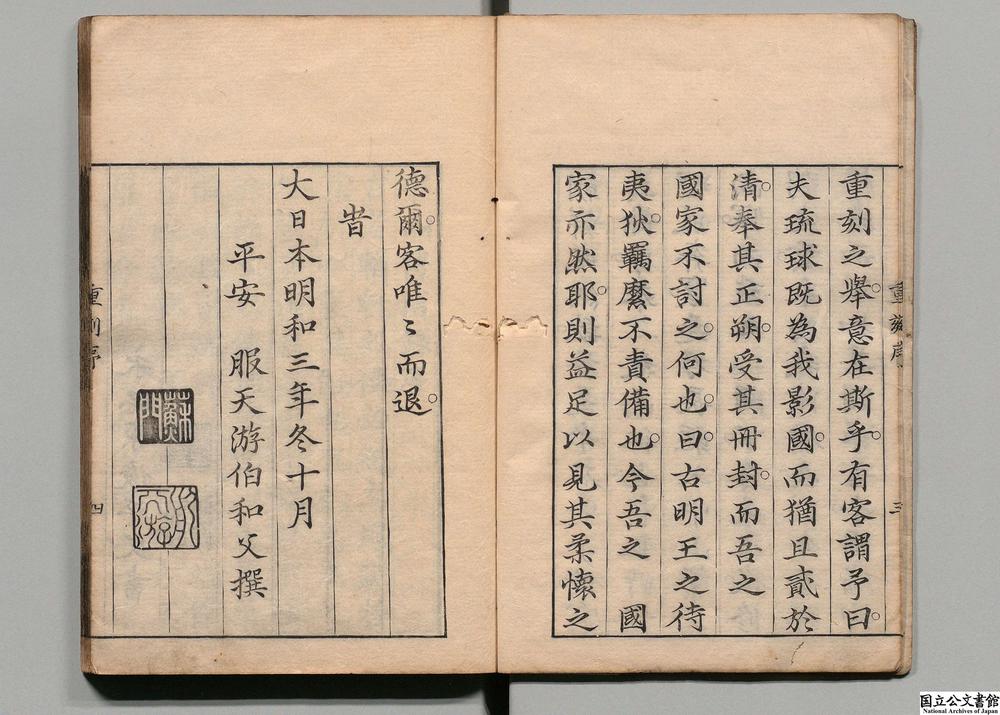 重刻之舉。意在斯乎。有客謂予曰。
夫琉球既為我影國。而猶且貳於
清。奉其正朔。受其冊封。而吾之
國家不討之。何也。曰。古明王之待
夷狄。羈縻不責備也。今吾之 國
家亦然耶。則益足以見其柔懷之
三
德爾。客唯〻而退。
旹
大日本明和三年冬十月
平安 服天游伯和父撰
四
国立公文書館
National Archives of Japan